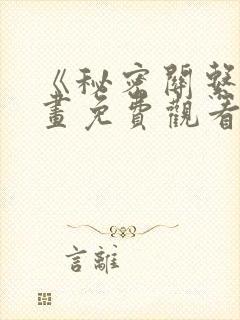 《秘密關繫
畫免費觀看
言離